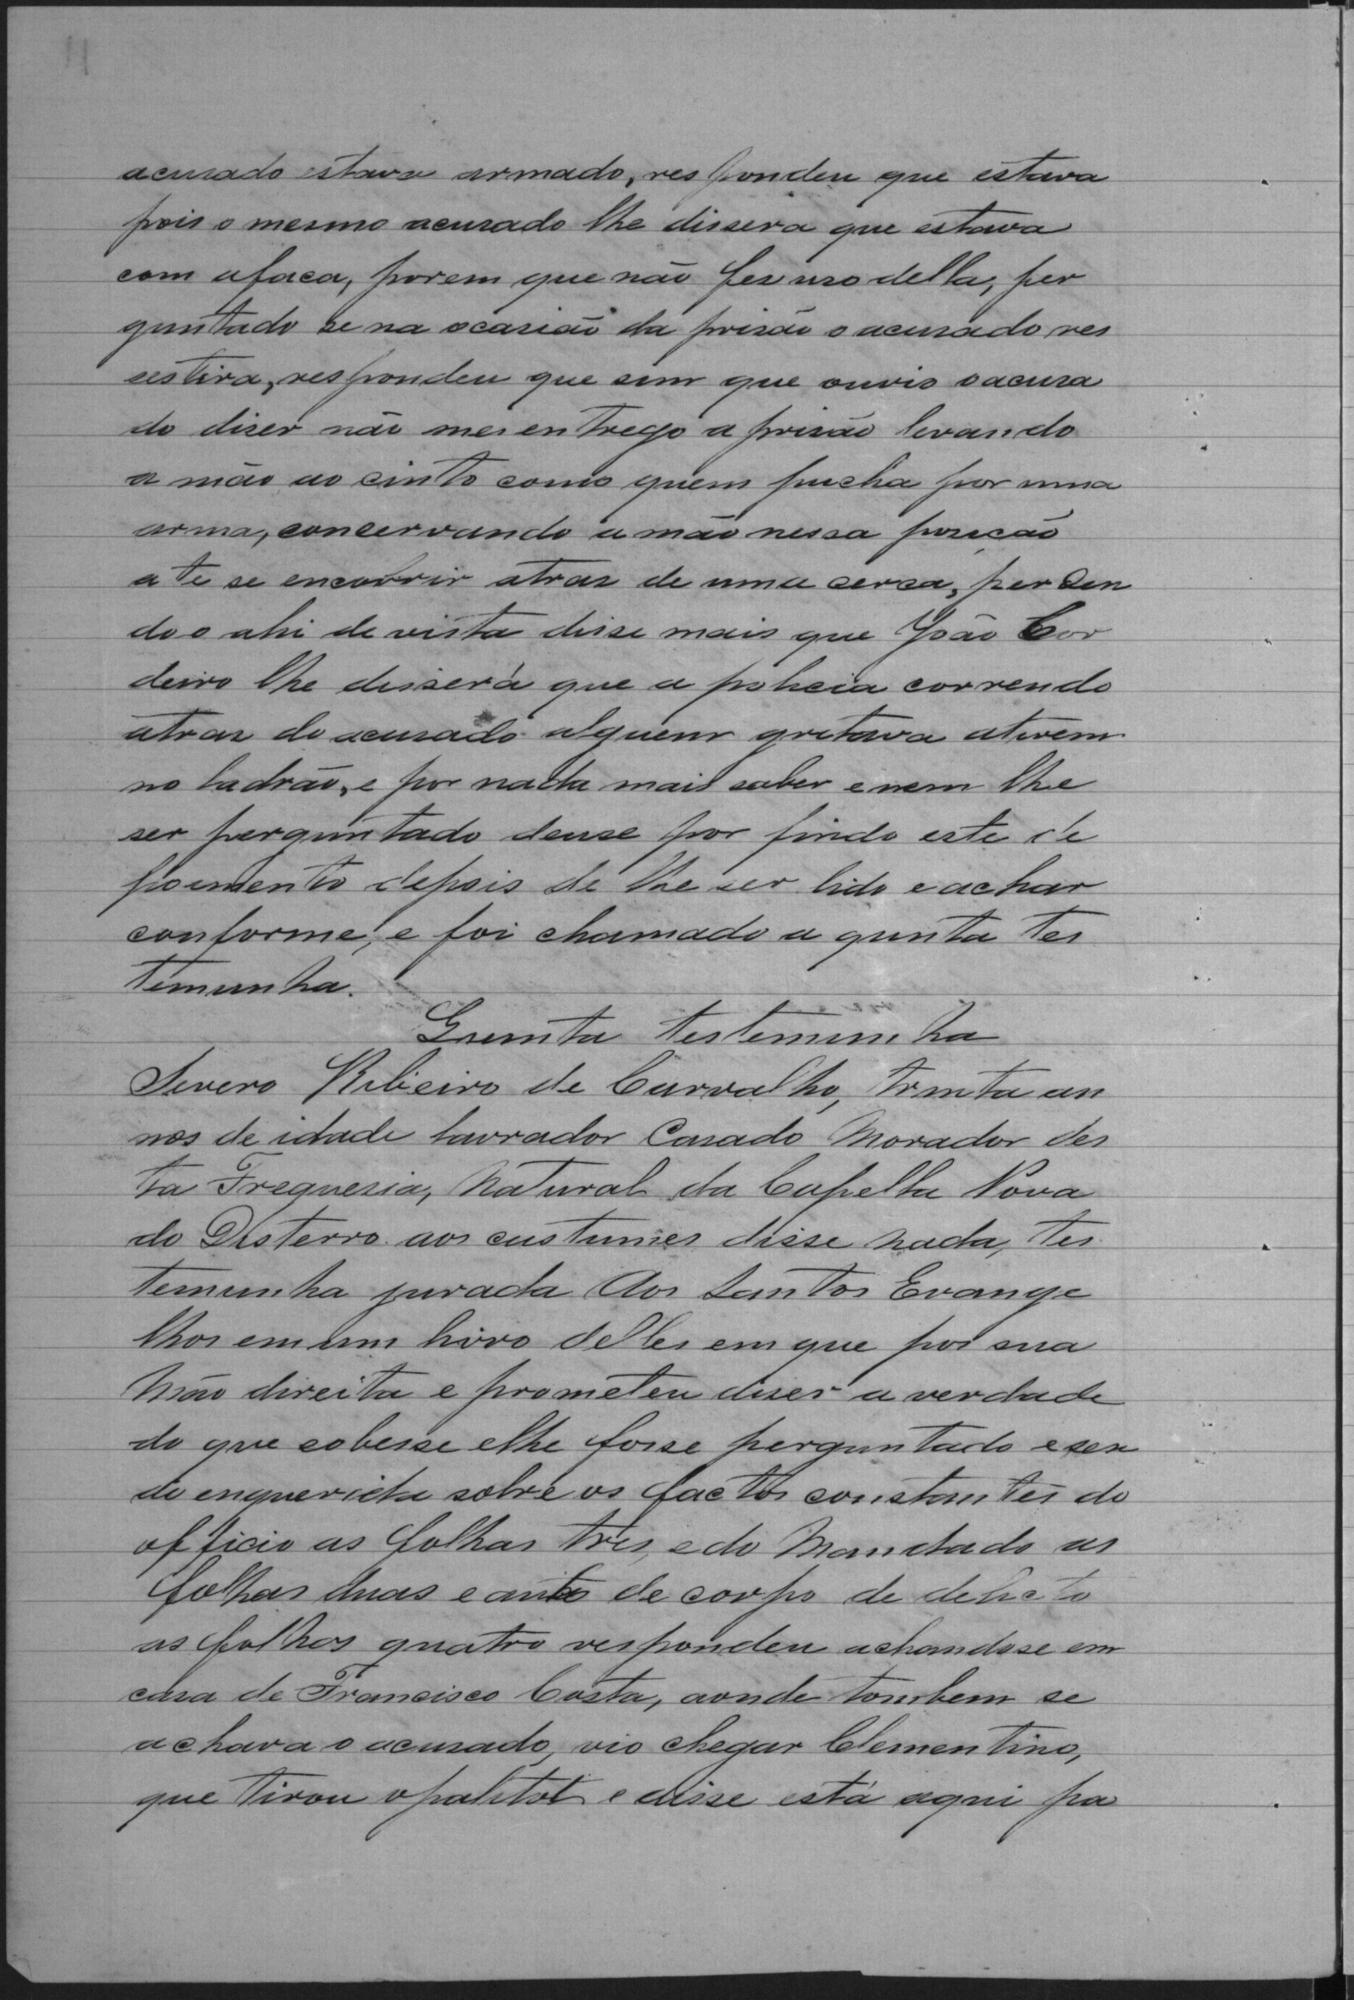 11
acusado estava armado, respondeu que estava
pois o mesmo acusado lhe dissera que estava
com a faca, porem que não fes uso della, per
guntado se na ocasião da prisão o acusado res
sestira, respondeu que sim que ouvio o acusa
do diser não me entrego a prisão levando
a mão ao cinto como quem pucha por uma
arma, concervando a mão nessa posição
ate se encobrir atras de uma cerca, perden
do o ahi de vista disse mais que João Cor
deiro lhe disserá que a policia correndo
atras do acusado alguem gritava atirem
no ladrão, e por nada mais saber e nem lhe
ser perguntado deuse por findo este de
poimento depois de lhe ser lido e achar
conforme, e foi chamado a quinta tes
temunha.
Quinta testemunha
Severo Ribeiro de Carvalho, trinta an
nos de idade lavrador Casado Morador des
ta Freguesia, Natural da Capella Nova
do Disterro aos custumes disse nada, tes
temunha jurada Aos Santos Evange
lhos em um livro delles em que pos sua
Mão direita e prometeu diser a verdade
do que sobesse e lhe fosse perguntado e sen
do enquerida sobre os factos constantes do
officio as folhas tres, e do Mandado as
folhas duas e auto de corpo de delicto
as folhas quatro respondeu achandose em
casa de Francisco Costa, aonde tambem se
achava o acusado, vio chegar Clementino,
que tirou o palitot e disse está aqui pa